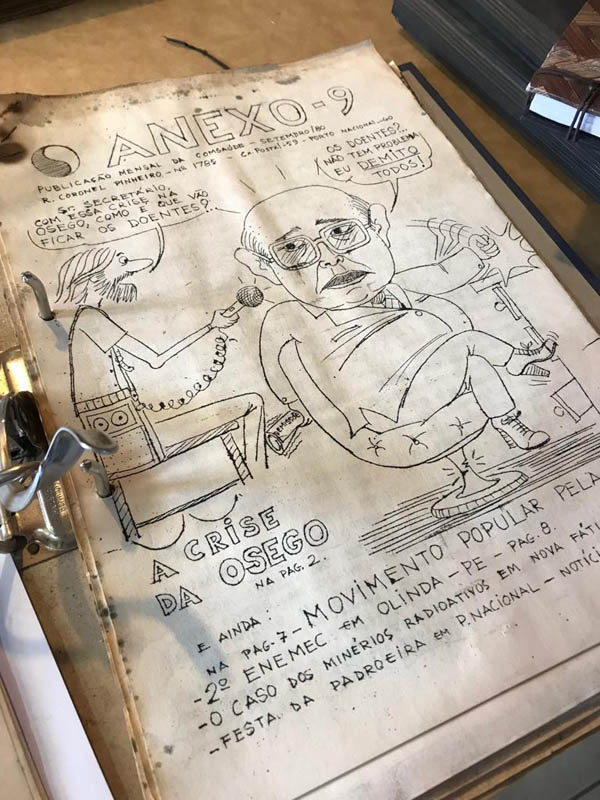 ANEXO-9
PUBLICAÇÃO MENSAL DA COMSAÚDE - SETEMBRO/80
R. CORONEL PINHEIRO - Nº 1785 - Cx. POSTAL-59 - PORTO NACIONAL-GO
SR. SECRETÁRIO,
COM ESSA CRISE NA
OSEGO, COMO É QUE VÃO
FICAR OS DOENTES?...
OS DOENTES?...
NÃO TEM PROBLEMA
EU DEMITO
TODOS!
A CRISE
DA OSEGO
NA PAG. 2.
E AINDA:
NA PAG-7 - MOVIMENTO POPULAR PELA
-2º ENEMEC EM OLINDA-PE - PAG. 8.
-O CASO DOS MINÉRIOS RADIOATIVOS EM NOVA FÁTI
-FESTA DA PADROEIRA EM P. NACIONAL - NOTÍCI